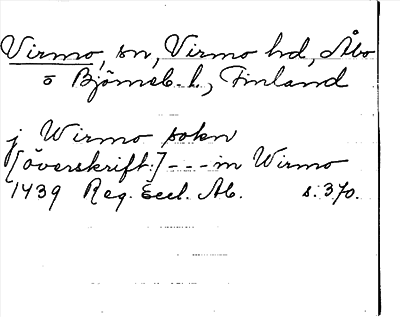 Virmo, sn, Virmo hd, Åbo
o Björneb. l., Finland
j Wirmo sokn
[överskrift:] --- in Wirmo
1439 Reg. Eccl. Ab. s. 370.